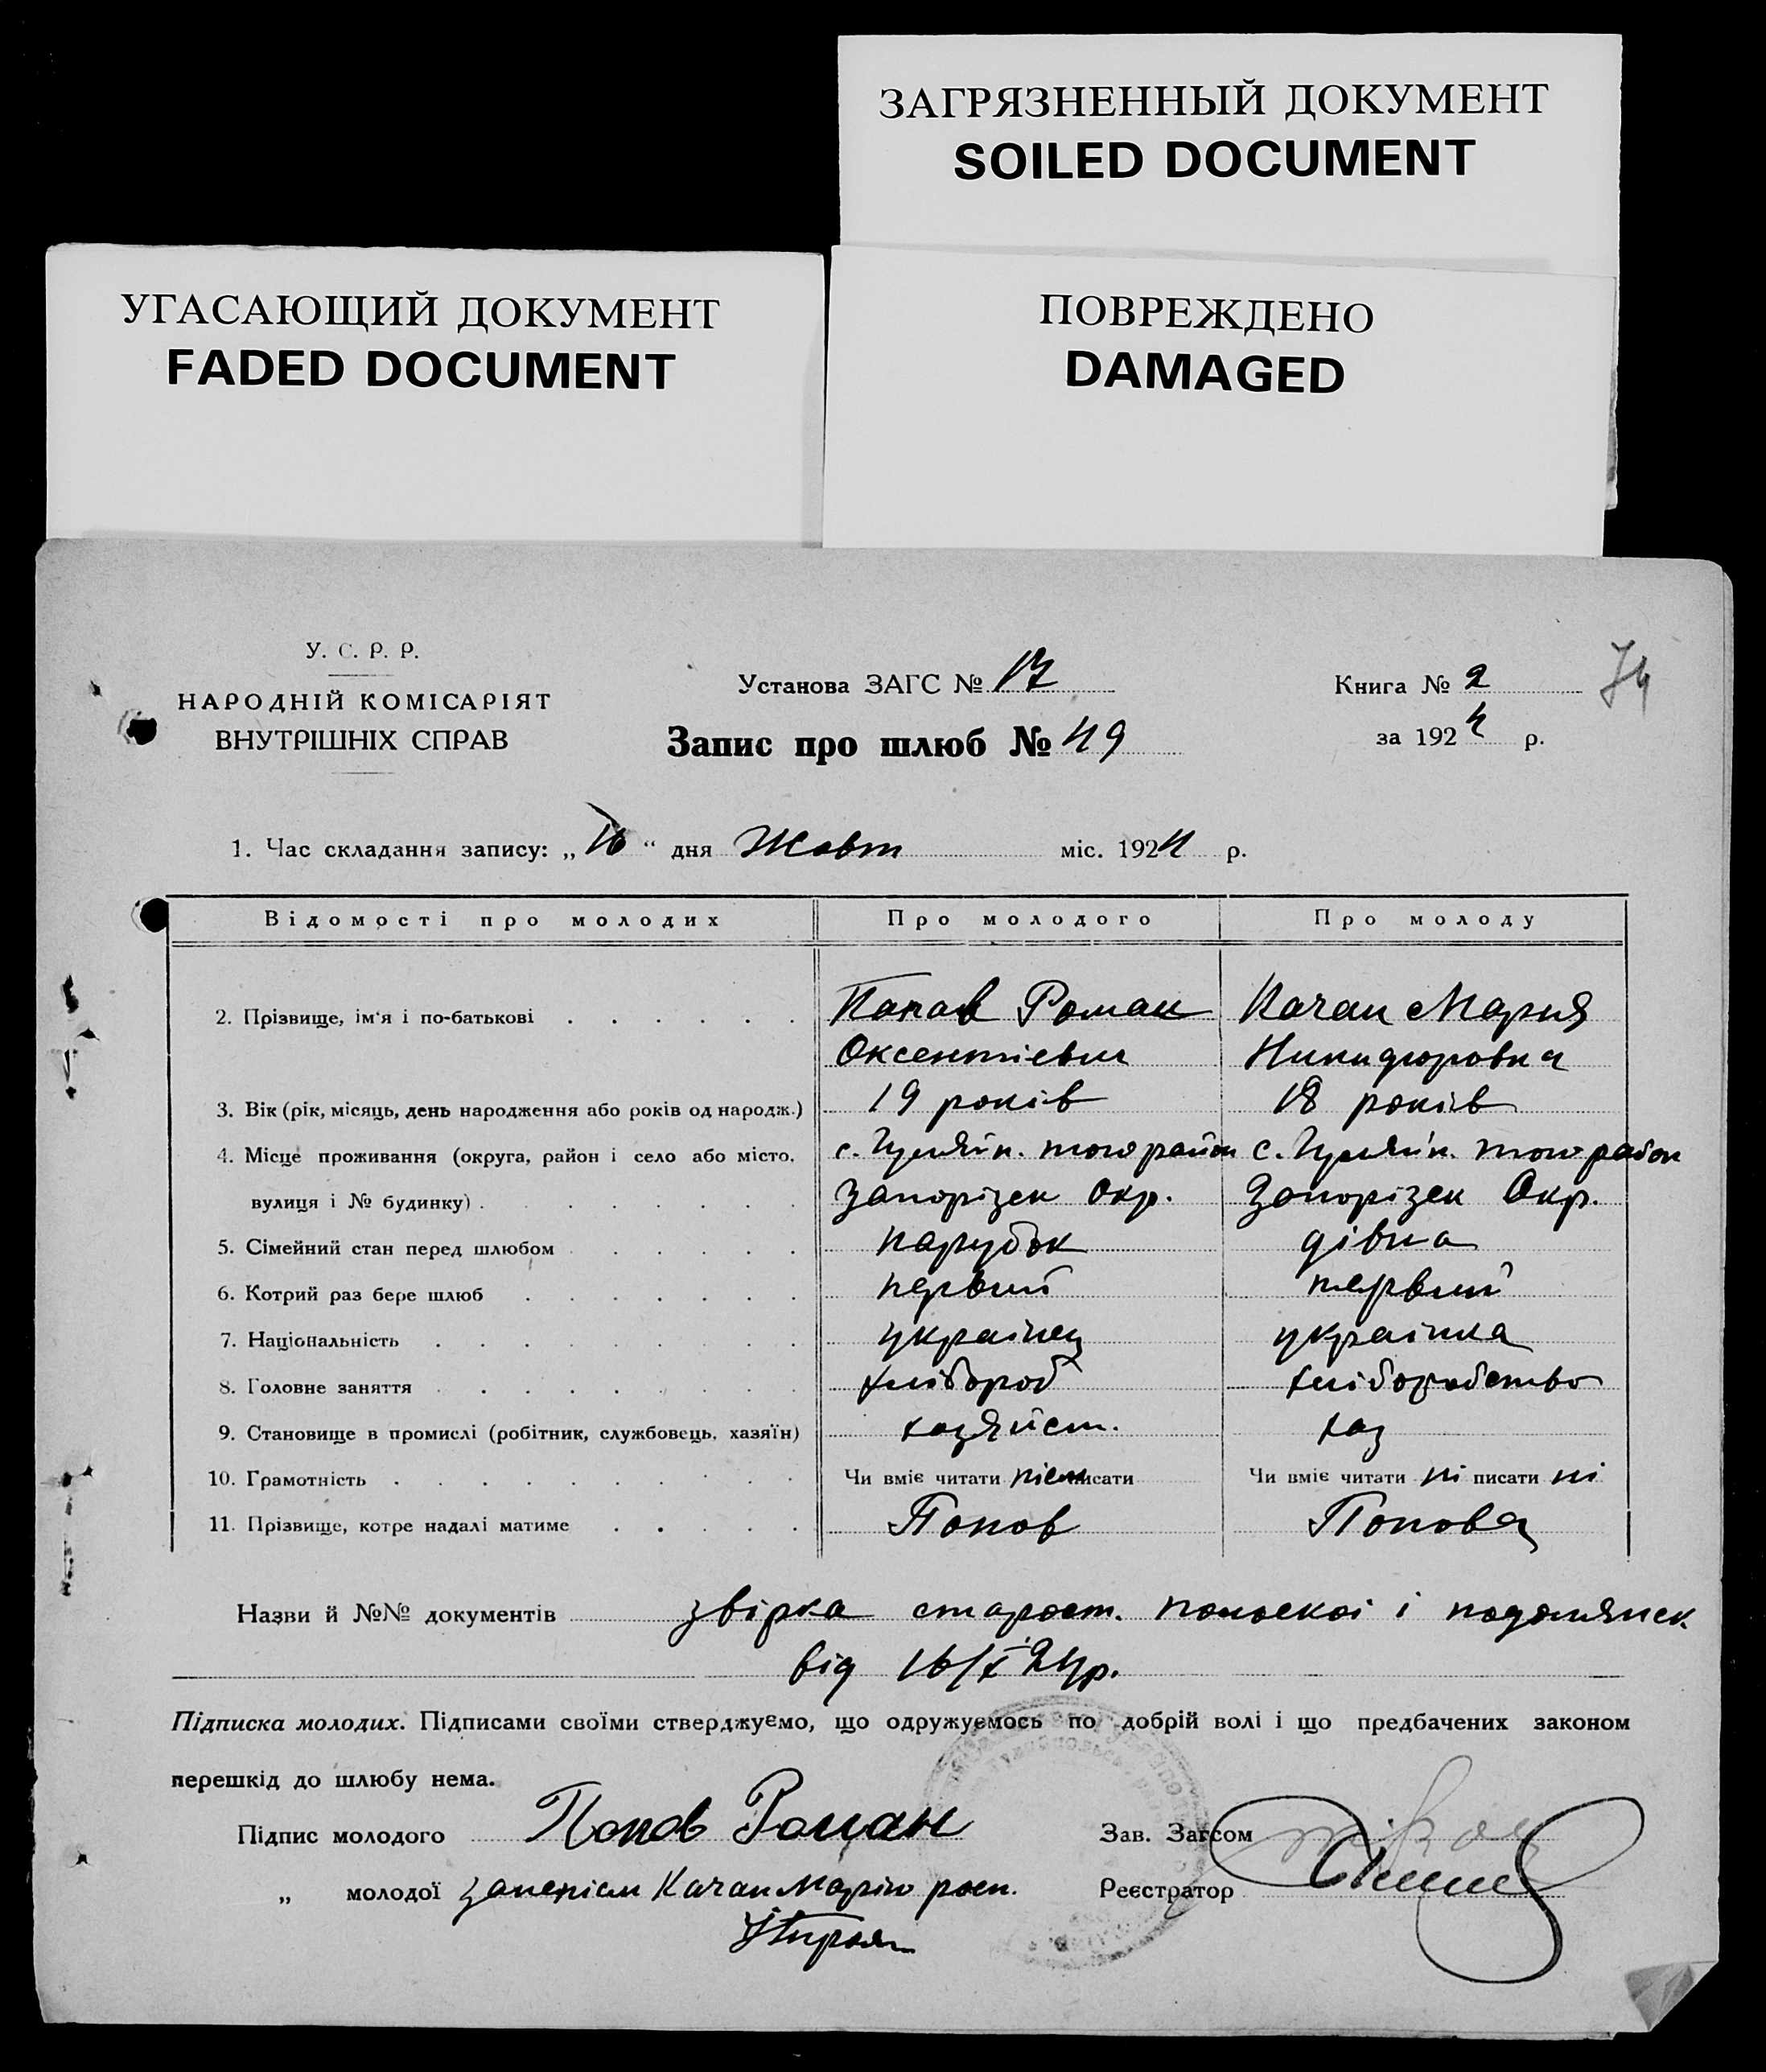 ЗАГРЯЗНЕННЫЙ ДОКУМЕНТ
SOILED DOCUMENT
УГАСАЮЩИЙ ДОКУМЕНТ
FADED DOCUMENT
ПОВРЕЖДЕНО
DAMAGED
У. С. Р. Р.
НАРОДНІЙ КОМІСАРІЯТ
ВНУТРІШНІХ СПРАВ
Установа ЗАГС № 17
Запис про шлюб № 49
Книга № 2
за 1924 р.
74
1. Час складання запису: „16“ дня Жовт міс. 1924 р.
Відомості про молодих Про молодого Про молоду
2. Прізвище, ім'я і по-батькові Попов Роман Качан Мария
Оксентіевич Никифоровна
3. Вік (рік, місяць, день народження або років од народж.) 19 років 18 років
4. Місце проживання (округа, район і село або місто, с. того район с. того район
вулиця і № будинку) Запорізск Окр. Запорізск Окр.
5. Сімейний стан перед шлюбом парубок дівка
6. Котрий раз бере шлюб первий первий
7. Національність українец українка
8. Головне заняття хлібороб хліборобство
9. Становище в промислі (робітник, службовець, хазяїн) хазяйст. хаз
10. Грамотність Чи вміє читати писати Чи вміє читати ні писати ні
11. Прізвище, котре надалі матиме Попов Попова
Назви й №№ документів звірка і
від 16/X 24р.
Підписка молодих. Підписами своїми стверджуємо, що одружуємось по добрій волі і що предбачених законом
перешкід до шлюбу нема.
Підпис молодого Попов Роман Зав. Загсом
„ молодої Качан Марію росп. Реєстратор